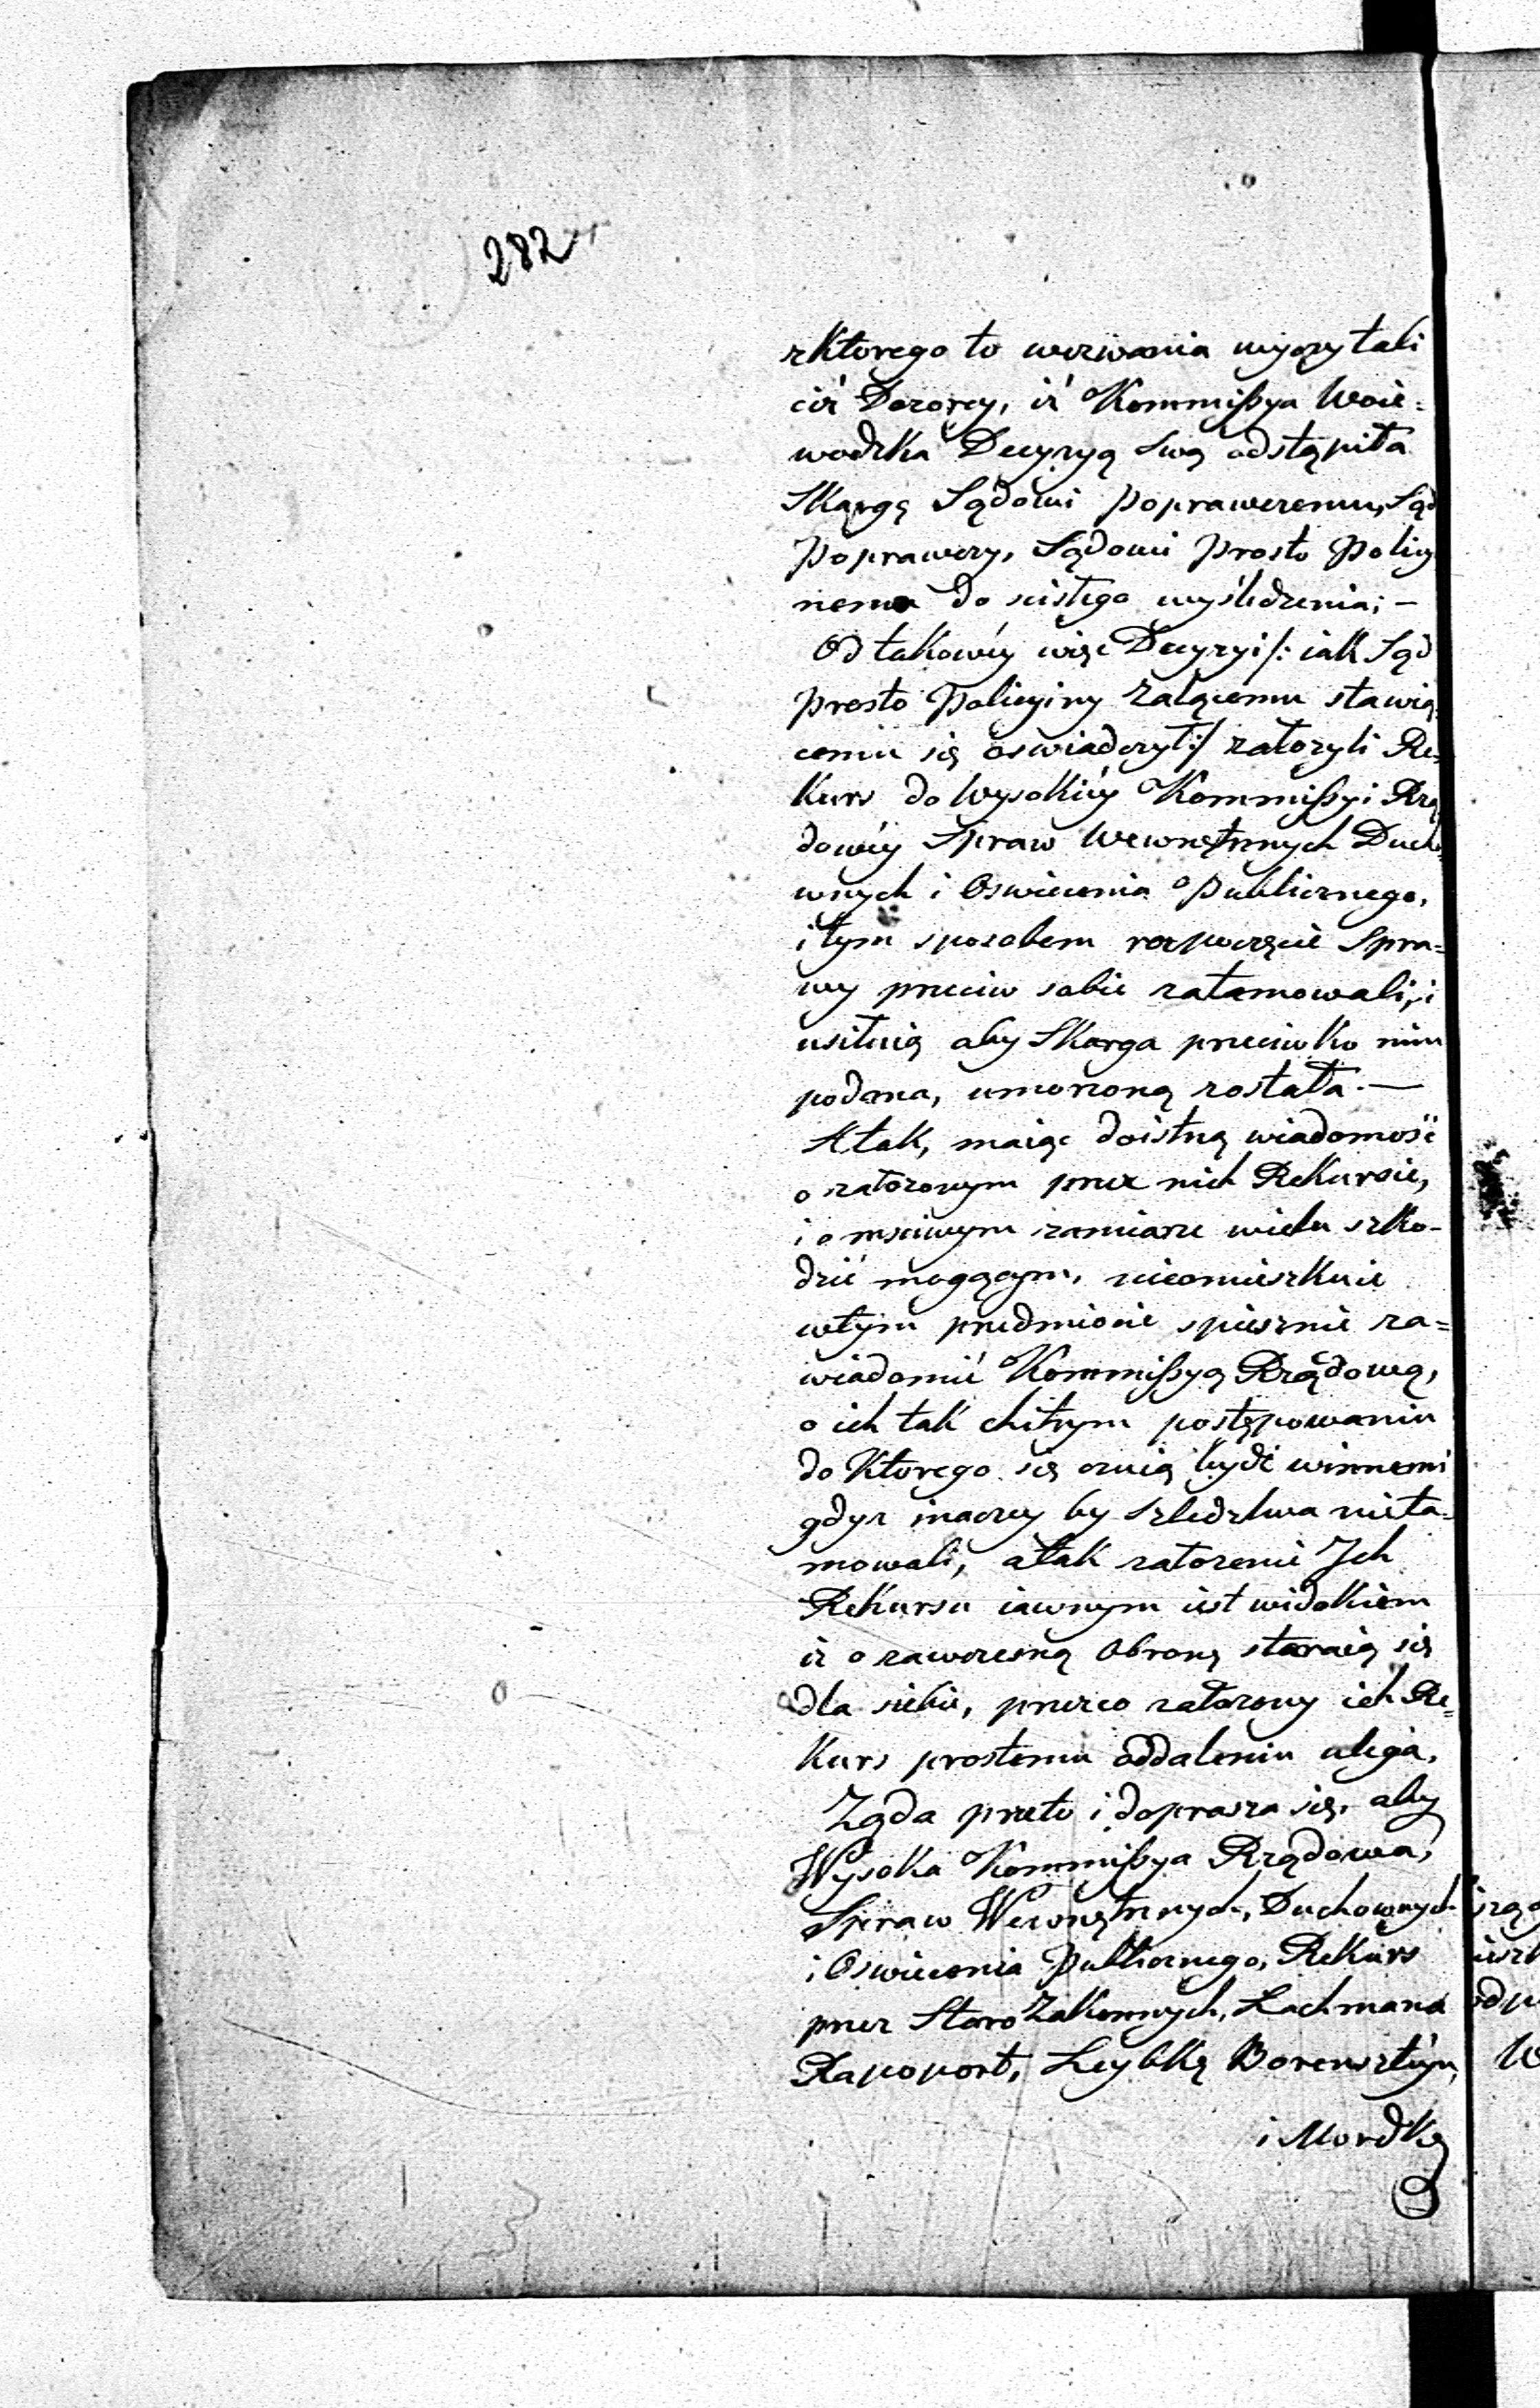 282
z Ktorego to wezwania wyczytali
ciż Dozorcy, iż Kommissya Woie=
wodzka Decyzyą swą odstąpiła
Skargę Sądowi Poprawczemu, Sąd
Poprawczy, Sądowi Prosto Policy
nemu do scisłego wyśledzenia; —
Od takowéy więc Decyzyi /: iak Sąd
Prosto Policyiny żalącemu stawią
cemu się oswiadczył :/ założyli Re=
kurs do Wysokiéy Kommissyi Rzą
dowéy Spraw Wewnętrznych Ducho
wnych i Oswiecenia Publicznego,
i tym sposobem rozpoczęcie Spra=
wy przeciw sobie zatamowali, i
usiłuią aby Skarga przeciwko nim
podana, umorzoną została. —
A tak, maiąc doistną wiadomość
o założonym przez nich Rekursie,
i o msciwym zamiarze wielu szko-
dzić mogącym, nieomieszkuie
w tym przedmiocie spiesznie za=
wiadomić Kommissyą Rządową,
o ich tak chitrym postępowaniu
do Ktorego się czuią bydź winnemi
gdyż inaczey by Szledztwa nieta=
mowali, a tak założenie Ich
Rekursu iawnym iest widokiem
iż o zawczesną Obronę staraią się
dla siebie, przezco założony ich Re=
kurs prostemu oddaleniu ulega,
Żąda przeto i doprasza się, aby
Wysoka Kommissya Rządowa,
Spraw Wewnętrznych, Duchownych
i Oswiecenia Publicznego, Rekurs
przez Starozakonnych, Lachmana
Rapoport, Leybkę Borensztéyn,
i Mordkę